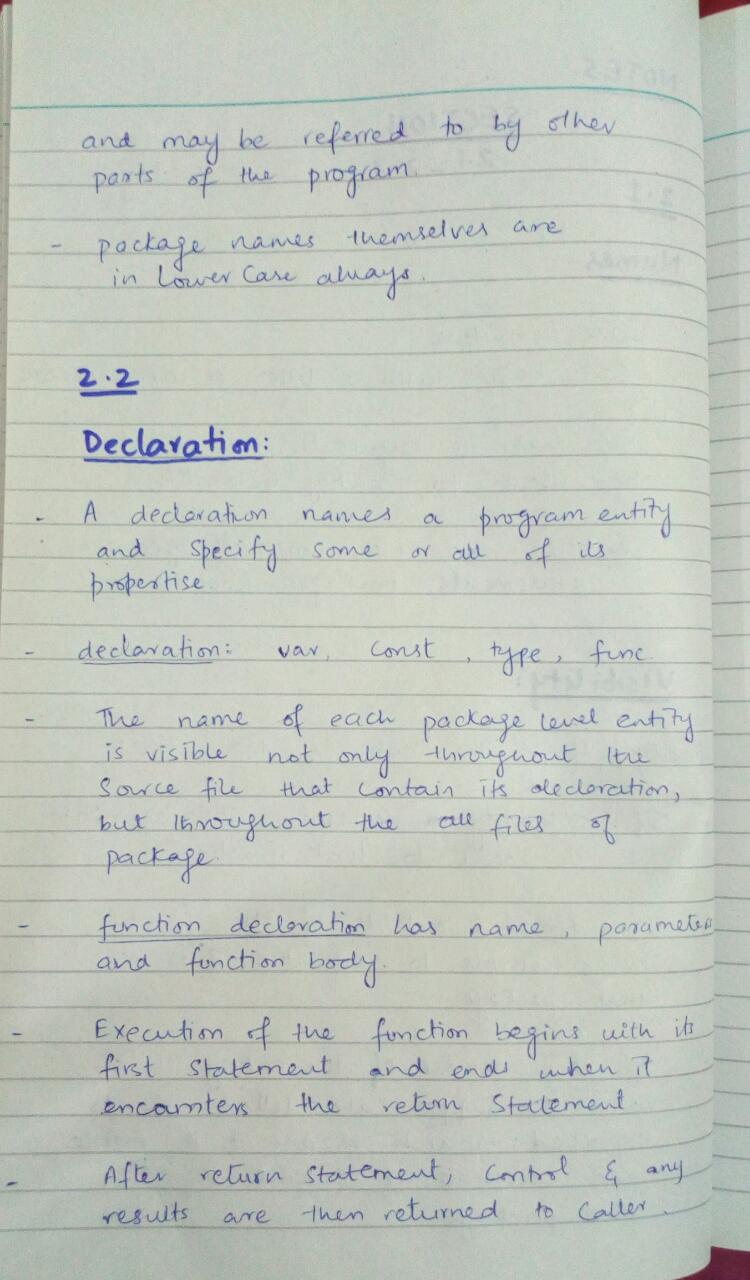 and may be referred to by other
parts of the program.
- package names themselves are
in Lower Case always.
2.2
Declaration:
- A declaration names a program entity
and Specify some or all of its
propertise
- declaration: var, const, type, func.
- The name of each package level entity
is visible not only throughout the
Source file that contain its declaration,
but throughout the all files of
package.
- function declaration has name, parameters
and function body.
- Execution of the function begins with its
first Statement and ends when it
encounters the return Statement.
- After return statement, control & any
results are then returned to caller.